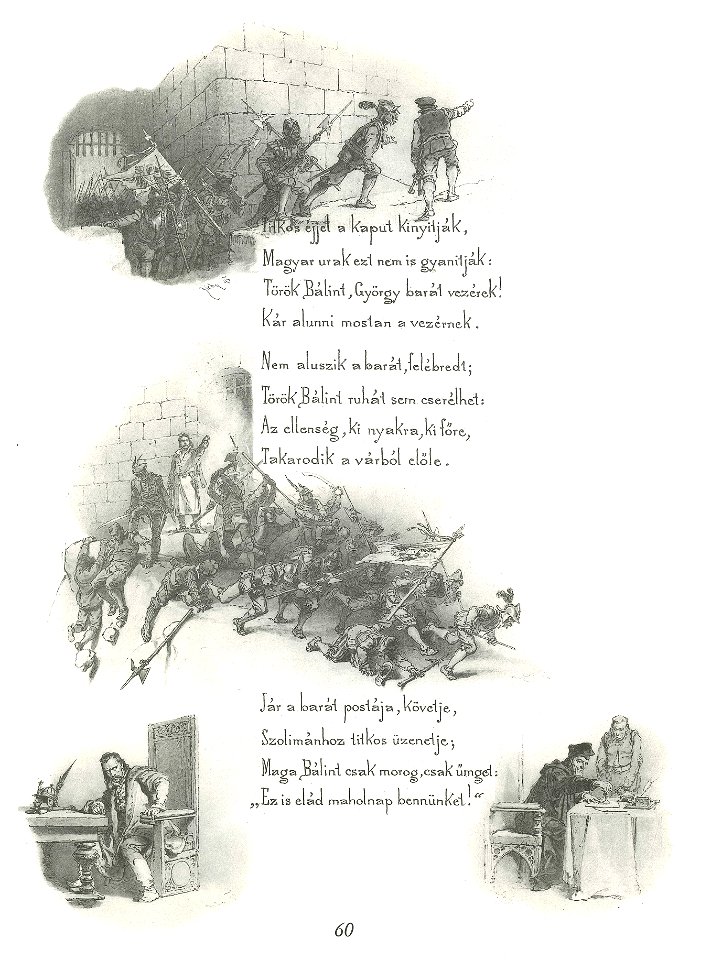 Titkos éjjel a kaput kinyitják,
Magyar urak ezt nem is gyanitják:
Török Bálint, György barát vezérek!
Kár alunni mostan a vezérnek.
Nem aluszik a barát, felébredt;
Török Bálint ruhát sem cserélhet:
Az ellenség, ki nyakra, ki főre,
Takarodik a várból előle.
Jár a barát postája, követje,
Szolimánhoz titkos üzenetje;
Maga Bálint csak morog, csak ümget:
„Ez is elád maholnap bennünket!“
60